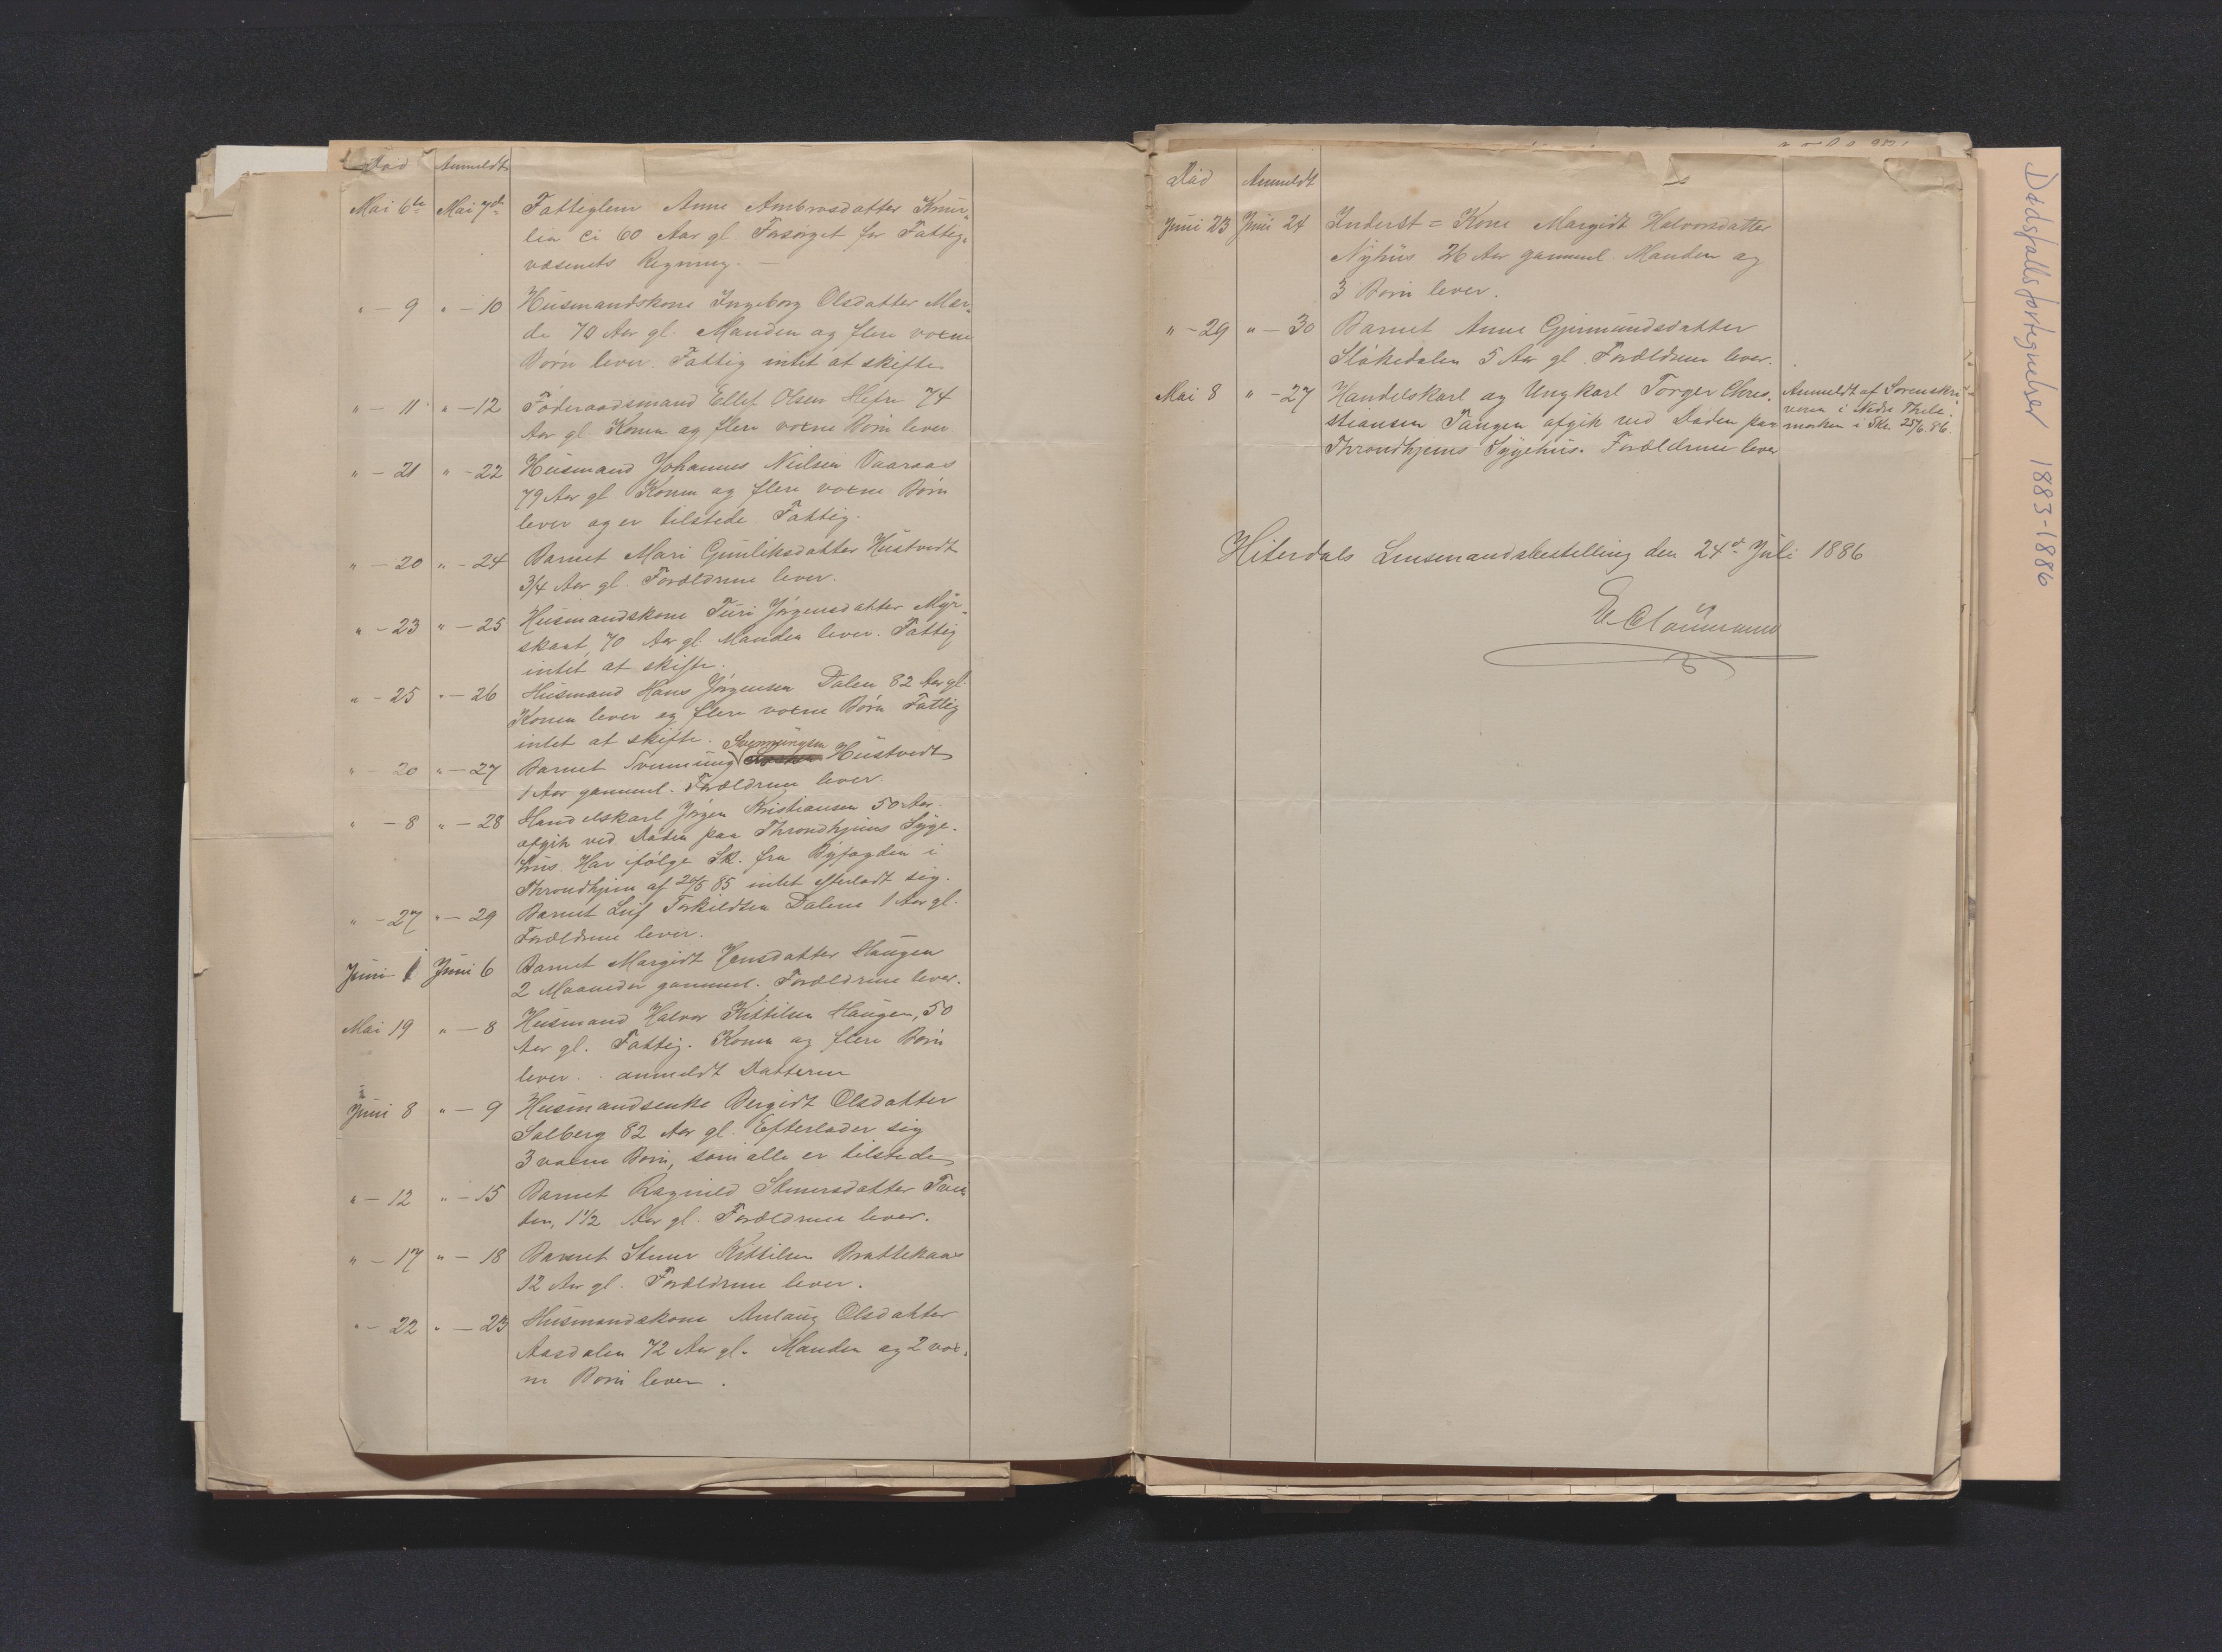 Död Anmeldt
Mai 6te Mai 7de Fatteglem Anne Ambrosdatter Knur-
lia ci 60 Aar gl Forsörget for Fattig-
væsenets Regning. —
" — 9 " — 10 Husmandskone Ingeborg Olsdatter Mær-
de 70 Aar gl. Manden og flere voxne
Börn lever. Fattig intet at skifte
" — 11 " — 12 Föderaadsmand Ellef Olsen Hefre 74
Aar gl. Konen og flere voxne Börn lever
" — 21 " — 22 Husmand Johannes Nielsen Vaaraas
79 Aar gl. Konen og flere voxne Börn
lever og er tilstede Fattig.
" — 20 " — 24 Barnet Mari Gunliksdatter Hustvedt
3/4 Aar gl. Forældrene lever.
" — 23 " — 25 Husmandskone Turi Jörgensdatter Myr-
skaat, 70 Aar gl. Manden lever. Fattig
intet at skifte.
" — 25 " — 26 Husmand Hans Jörgensen Dalen 82 Aar gl.
Konen lever og flere voxne Börn Fattig
intet at skifte.
Svennungsen
" — 20 " — 27 Barnet Svennung Hustvedt
1 Aar gammel. Forældrene lever.
" — 8 " — 28 Handelskarl Jörgen Kristiansen 50 Aar.
afgik ved Döden paa Throndhjems Syge-
hus. Har ifölge Sk. fra Byfogden i
Throndhjem af 24/5 85 intet efterladt sig.
" — 27 " — 29 Barnet Leif Torkildsen Dalene 1 Aar gl.
Forældrene lever.
Juni 1 Juni 6 Barnet Margidt Hansdatter Haugen
2 Maaneder gammel. Forældrene lever.
Mai 19 " — 8 Husmand Halvor Kittilsen Haugen, 50
Aar gl. Fattig. Konen og flere Börn
lever. anmeldt Datteren
Juni 8 " — 9 Husmandsenke Bergidt Olsdatter
Solberg 82 Aar gl. Efterlader sig
3 voxne Börn, som alle er tilstede
" — 12 " — 15 Barnet Ragnild Stenersdatter Tvei-
ten, 1 1/2 Aar gl. Forældrene lever.
" — 17 " — 18 Barnet Stener Kittilsen Brattekaas
12 Aar gl. Forældrene lever.
" — 22 " — 23 Husmandskone Anlaug Olsdatter
Aasdalen 72 Aar gl. Manden og 2 vox-
ne Börn lever.
Död Anmeldt
Juni 23 Juni 24 Inderst = Kone Margidt Halvorsdatter
Nyhus 26 Aar gammel. Manden og
3 Börn lever.
" — 29 " — 30 Barnet Anne Gjermundsdatter
Slökedalen 5 Aar gl. Forældrene lever.
Mai 8 " — 27 Handelskarl og Ungkarl Torger Chri- Anmeldt af Sorenskri-
stiansen Tangen afgik ved Döden paa veren i Nedre Thele-
Throndhjems Sygehus. Forældrene lever marken i Skr. 25/6 86.
Hiterdals Lensmandsbestilling den 24de Juli 1886
Dødsfallsfortegnelser 1883-1886